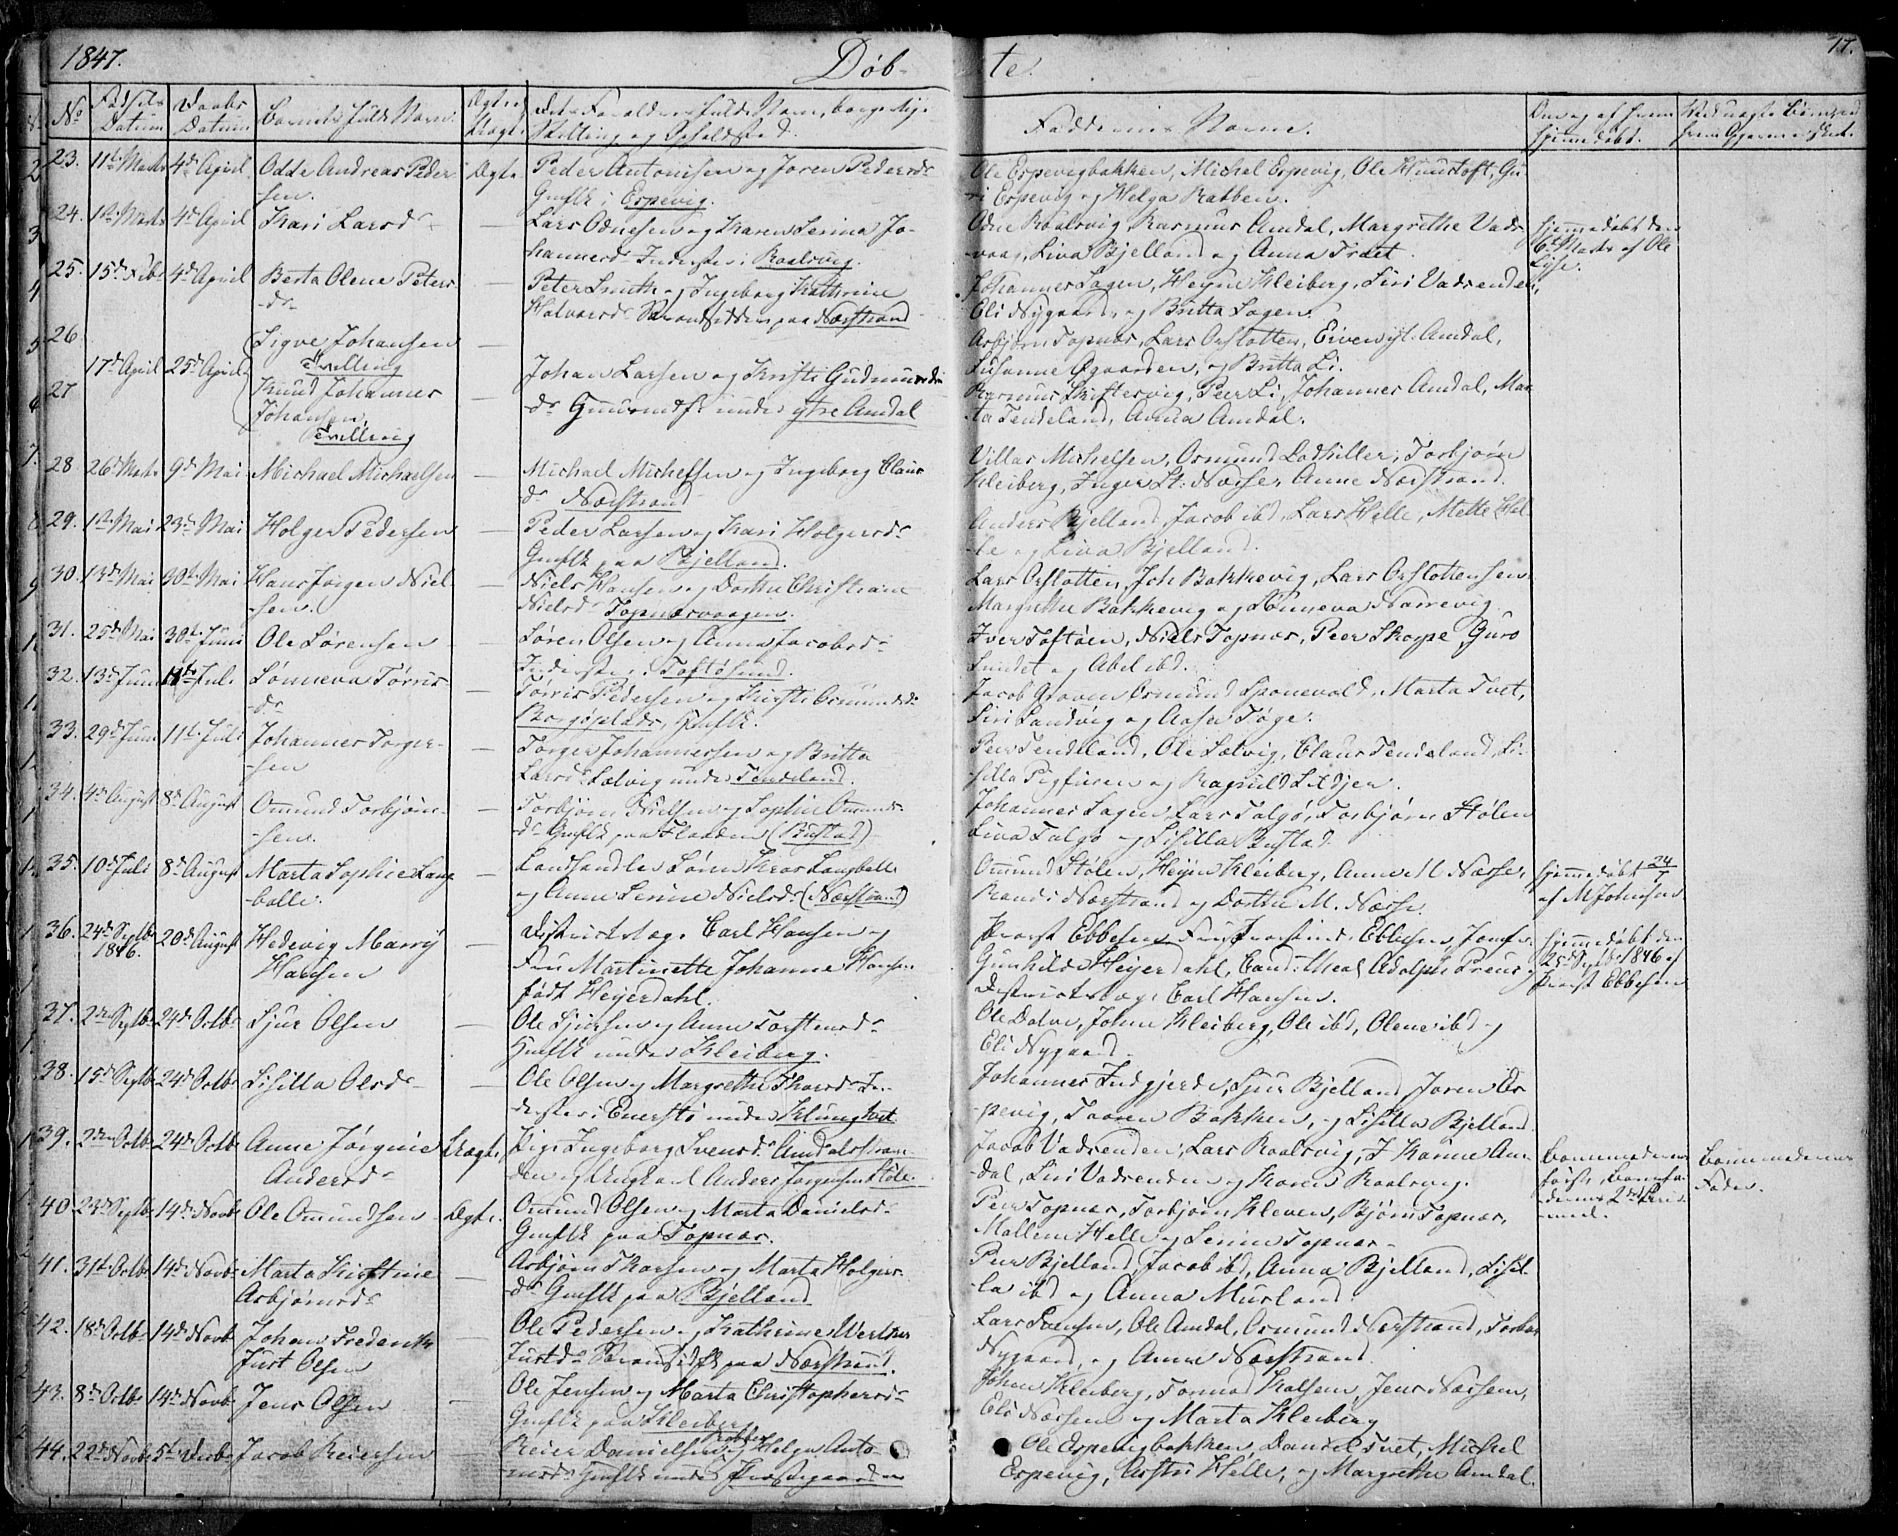 1847.
Døb-
te.
77.
No
Datum
Daabs Datum
Barnets fulde Navn.
Faddernes Navne.
hjemmedøbt.
23. 11te Marts 4de April Odde Andreas Peder-
sen.
Ægte
Peder Antonisen og Joren Pedersdr
Gmflk i Espevig.
Ole Espevigbakken, Michel Espevig, Ole Tuustoft, Gu-
ri Espevig og Helga Krabben.
24. 1ste Marts 4de April Kari Larsdr
Lars Odnesen og Karen Serina Jo-
hannesdr Inderster i Raalsvig.
Odne Raalsvig, Rasmus Amdal, Margrethe Vads-
vaag, Siva Bjelland og Anna Tvæt.
hjemmedøbt den
6te Marts af Ole
25. 15de Feb. 4de April Berta Olene Peters-
dr
Peter Smith og Ingeborg Kathrine
Halvorsdr Strandsidder paa Nærstrand
Johannes Sagen, Heyne Kleiberg, Siri Vadsenden,
Eli Nygaard, og Britta Sagen.
26.
17de April 25de April
Sigve Johansen
Tvilling
Asbjørn Topnæs, Lars Orstotten, Eivend Amdal,
Susanne Øgaarden, og Britta Li.
27
Knud Johannes
Johansen,
Tvilling
Johan Larsen og Kirsti Gudmunds-
dr under ytre Amdal
Rasmus Skiftesvig, Peer Li, Johannes Amdal, Mar-
ta Tendeland, Anna Amdal.
28. 26de Marts 9de Mai Michael Michaelsen
Michael Michelsen og Ingeborg Claus-
dr Nærstrand
Villas Michelsen, Osmund Ladhiller, Torbjørn
Kleiberg, Inger St: Næsse, Anne Nærstrand.
29. 1ste Mai 23de Mai Holger Pedersen
Peder Larsen og Kari Holgersdr
Gmflk paa Bjelland.
Anders Bjelland, Jacob ibd, Lars Helle, Mette Hel-
le og Siva Bjelland.
30. 13de Mai 30te Mai Hans Jørgen Niel-
sen.
Niels Hansen og Dorthe Christiane
Nielsdr Topnæsvaagen.
Lars Orstotten, Joh Bakkevig, Lars Orstottensen
Margrethe Bakkevig og Sønneva Narrevig
31. 25de Mai 30te Juni Ole Sørensen
Søren Olsen og Anna Jacobsdr
Inderster i Toftøsund.
Iver Toftøen, Niels Topnæs, Peer Skorpe, Guro
Sundet og Abel ibd.
32. 13de Juni 11te Juli Sønneva Tørris-
dr
Tørris Pedersen og Kirsti Osmundsdr
Borgøplads, Hmflk.
Jacob Graven, Osmund Sponevold, Marta Tvet,
Siri Sandvig og Aasa Tøge.
33. 29de Juni 11te Juli Johannes Torger-
sen
Torger Johannessen og Britta
Larsdr Sætvig under Tendeland.
Peer Tendeland, Ole Sætvig, Claus Tendeland, Si-
silla og Ragnild
34. 4de August 8de August Omund Torbjørn-
sen.
Torbjørn Nielsen og Sophie Omunds-
dr Gmflk paa Flaaden (Bustad)
Johannes Sagen, Lars Talgø, Torbjørn Stølen
Siva Talgø og Sisilla Bustad.
35. 10de Juli 8de August Marta Sophie Lang-
balle.
Landhandler Søren Langballe
og Anne Serine Nielsdr (Nærstrand)
Omund Stølen, Heyne Kleiberg, Anne M Næsse,
Randi Nærstrand og Dorthe M. Næsse.
hjemmedøbt 24/7
af M Johnsen.
36. 24de Septbr
1846.
20de August Hedevig Marry
Hansen
Districtslæge Carl Hansen og
Frue Martinette Johanne Hansen
født Heyerdahl.
Provst Ebbesen, Frue Provstinde Ebbesen, Jomfr.
Gunhilde Heyerdahl, Cand: Med Adolph Preus og
Districtslæge Carl Hansen.
hjemmedøbt den
25de Septbr 1846 af
Provst Ebbesen
37. 2den Septbr 24de Octbr Sjur Olsen
Ole Sjursen og Anne Torstensdr
Hmflk under Kleiberg.
Ole Dalva, Johne Kleiberg, Ole ibd, Olene ibd og
Eli Nygaard.
38. 15de Septbr 24de Octbr Sisilla Olsdr
Ole Olsen og Margrethe Thorsdr In-
derster i Enersti under Klungtvet
Johannes Indgjerde, Sjur Bjelland, Joren Es-
pevig, Taaren Bakken, og Sisilla Bjelland.
39. 2den Octbr 24de Octbr Anne Jørgine
Andersdr
Uægte
Pige Ingeborg Svensdr Amdalsstran-
den og Ungkarl Anders Jørgensen Støle.
Jacob Vadsenden, Lars Raalsvig, J Kanne Am-
dal, Siri Vadsenden og Karen Raalsvig.
Barnemoderens
første, Barnefa-
derens 2det Leier-
maal.
Barnemoderens
Fader.
40. 23de Septbr 14de Novbr Ole Omundsen
Ægte.
Omund Olsen og Marta Danielsdr
Gmflk paa Topnæs.
Peer Topnæs, Torbjørn Kleven, Bjørn Topnæs,
Mallene Helle og Serine Topnæs
41. 31te Octbr 14de Novbr Marta Kirstine
Asbjørnsdr
Asbjørn Thorsen og Marta Holgers-
dr Gmflk paa Bjelland
Peer Bjelland, Jacob ibd, Anna Bjelland, Sisil-
la ibd og Anna Musland.
42. 18de Octbr 14de Novbr Johan Frederik
Just Olsen
Ole Pedersen og Kathrine
Justdr Strandsidflk paa Nærstrand.
Lars Svensen, Ole Amdal, Osmund Nærstrand,
Nygaard, og Anna Nærstrand.
43. 8de Octbr 14de Novbr Jens Olsen
Ole Jensen og Marta Christophersdr
Gmflk paa Kleiberg
Johan Kleiberg, Tormod Kalsem, Jens Næssen,
Eli Næssen og Marta Kleiberg
44. 22de Novbr 5te Decbr Jacob Reiersen
Reier Danielsen og Helga Anto-
nisdr Gmflk under Præstegaarden
Krabben
Ole Espevigbakken, Daniel Tvet, Michel
Espevig, Astri Helle, og Margrethe Amdal.